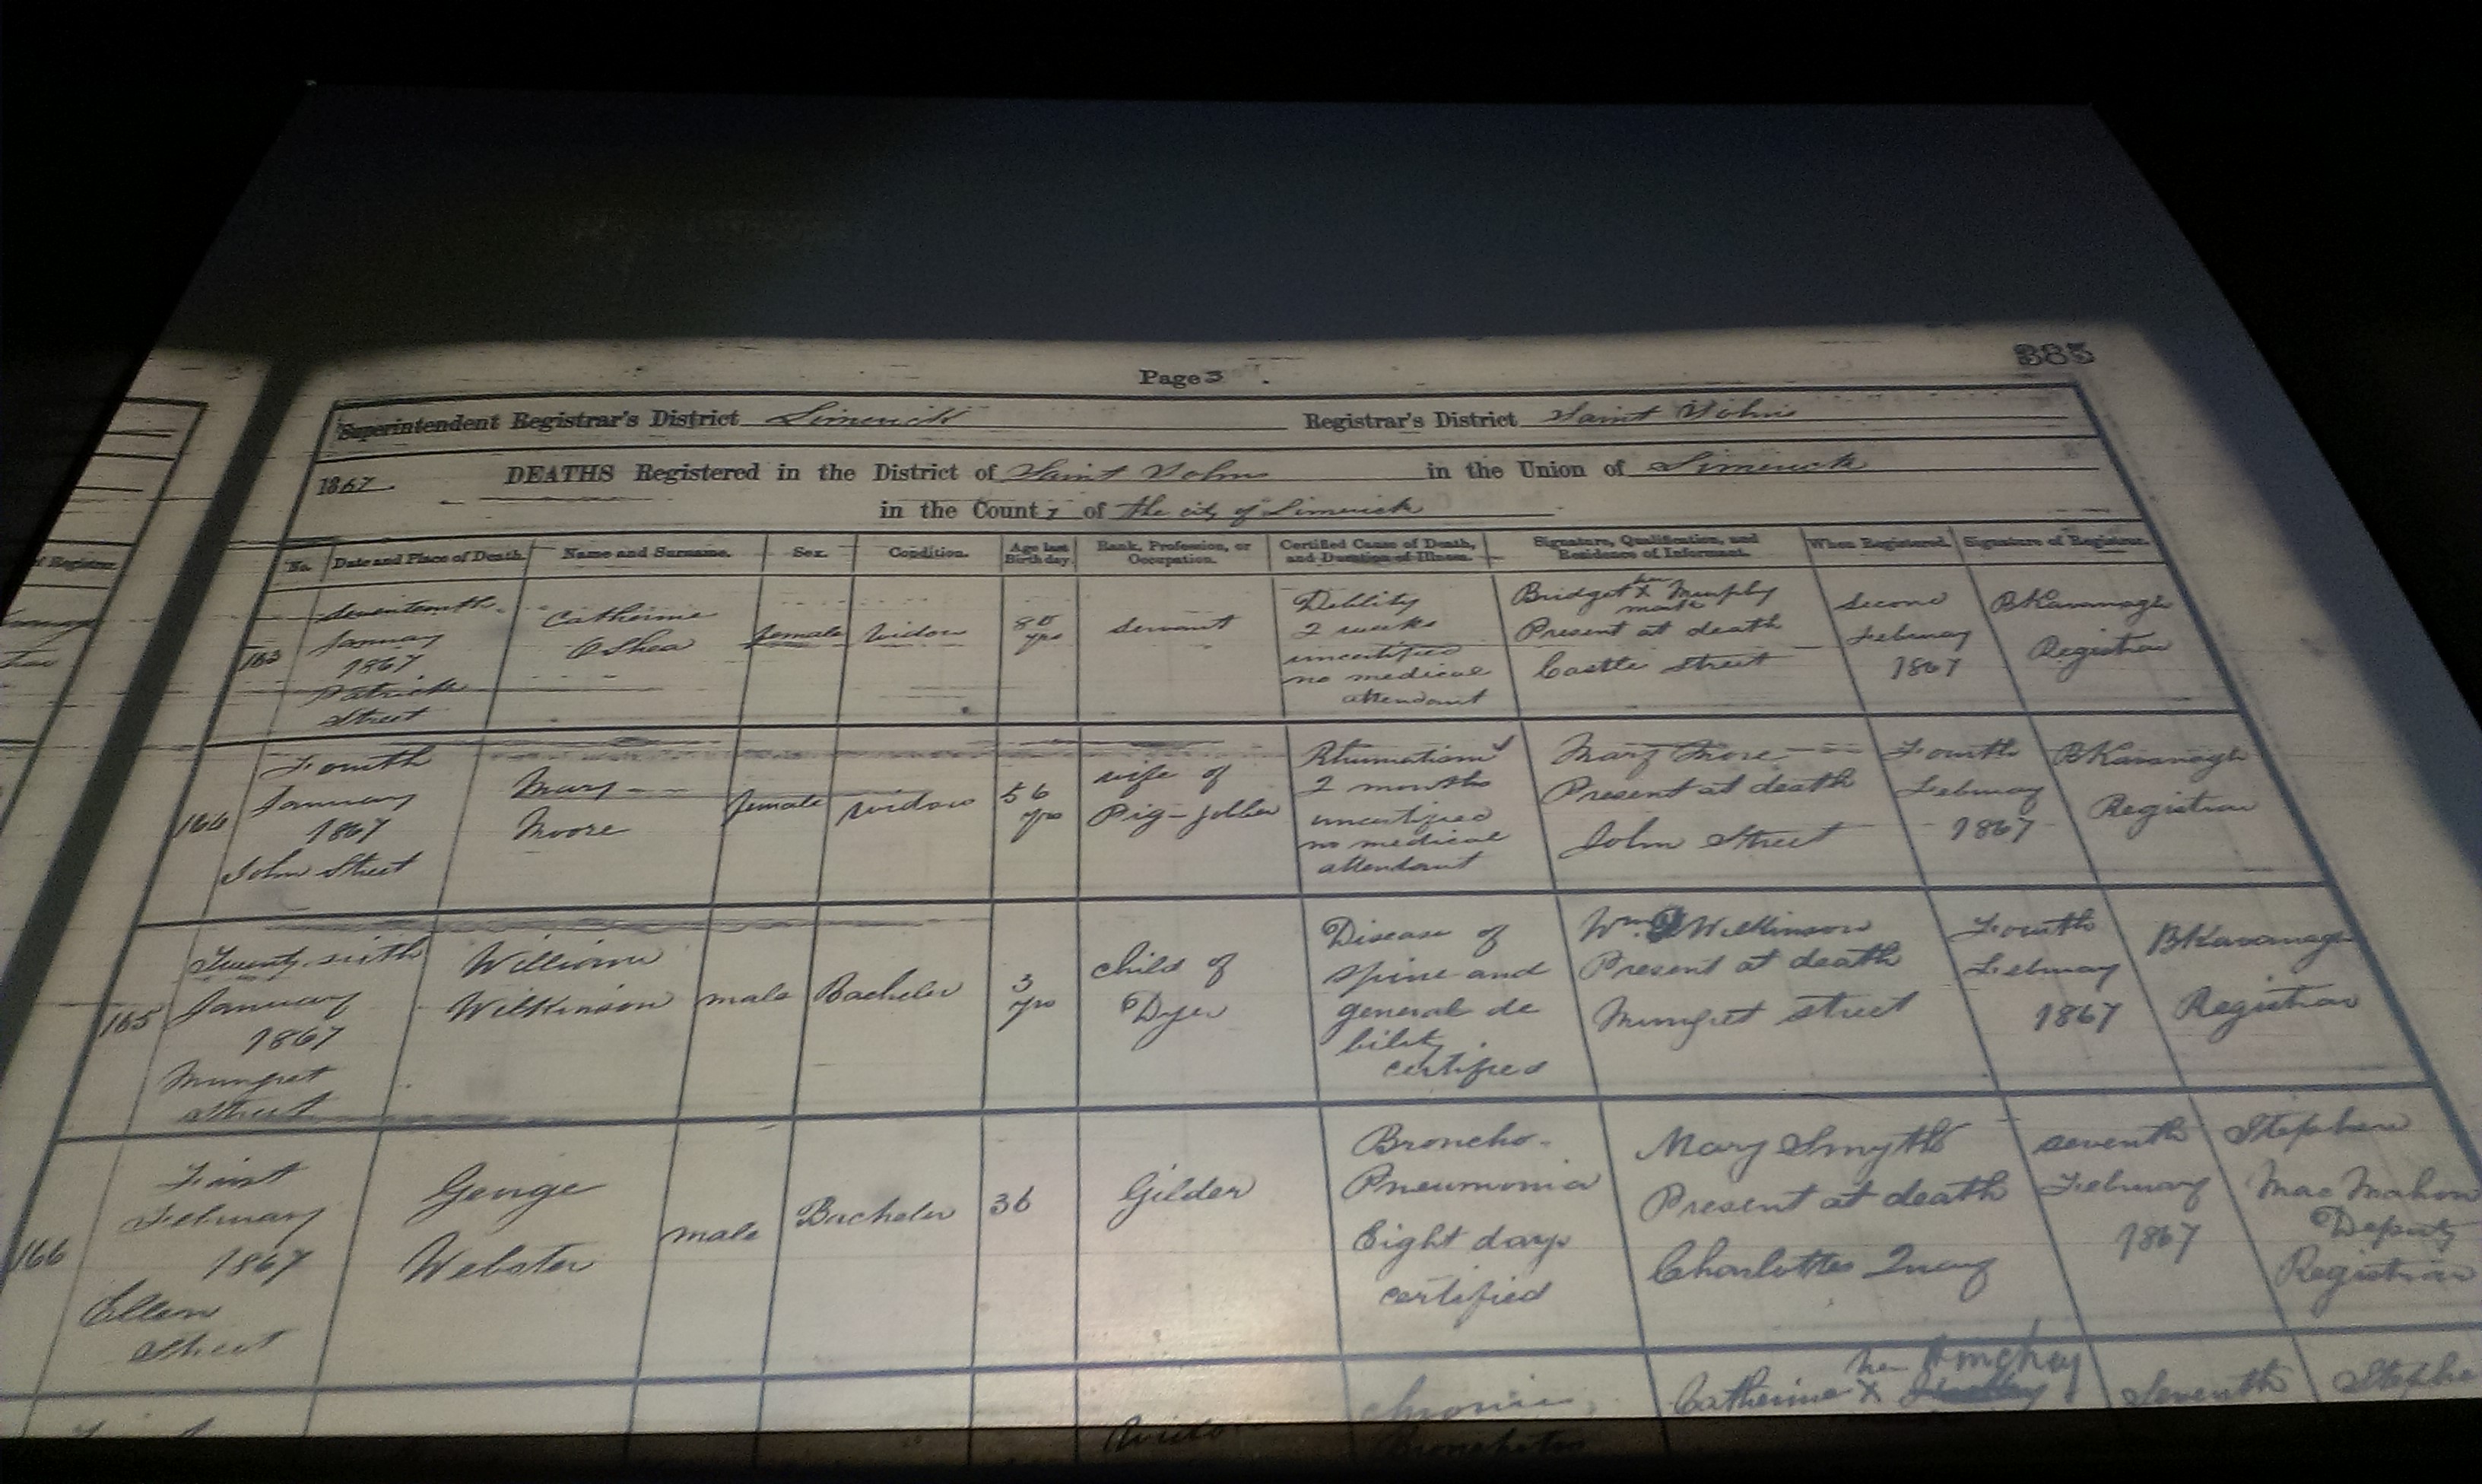 Page 3
385
Superintendent Registrar's District Limerick Registrar's District Saint Johns
1867. DEATHS Registered in the District of Saint Johns in the Union of Limerick
in the County of the city of Limerick
No. Date and Place of Death. Name and Surname. Sex. Condition. Age last Birthday. Rank, Profession, or Occupation. Certified Cause of Death, and Duration of Illness. Signature, Qualification, and Residence of Informant. When Registered. Signature of Registrar.
163
Seventeenth
January
1867
Patrick
Street
Catherine
O'Shea
female
Widow
80
yrs
Servant
Debility
2 weeks
uncertified
no medical
attendant
Bridget her X mark Murphy
Present at death
Castle Street
Second
February
1867
B Kavanagh
Registrar
164
Fourth
January
1867
John Street
Mary
Moore
female
widow
56
yrs
wife of
Pig-jobber
Rhumatism
2 months
uncertified
no medical
attendant
Mary More
Present at death
John Street
Fourth
February
1867
B Kavanagh
Registrar
165
Twenty-sixth
January
1867
Mungret
Street
William
Wilkinson
male
Bachelor
3
yrs
child of
Dyer
Disease of
spine and
general de
bility
certified
Wm. Wilkinson
Present at death
Mungret street
Fourth
February
1867
B Kavanagh
Registrar
166
First
February
1867
Ellen
Street
George
Webster
male
Bachelor
36
Gilder
Broncho-
Pneumonia
Eight days
certified
Mary Smyth
Present at death
Charlottes Quay
seventh
February
1867
Stephen
MacMahon
Deputy
Registrar
First
Widow
Chronic
Bronchitis
her
Catherine X
Seventh
Stephe
of Registrar.